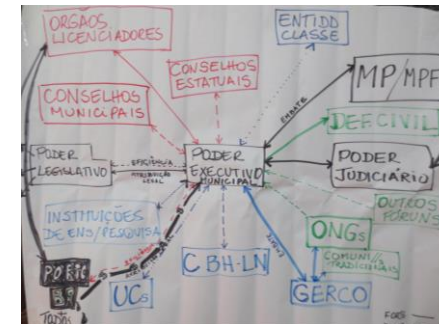 ORGÃOS
LICENCIADORES
ENTIDD
CLASSE
CONSELHOS
ESTATUAIS
MP/MPF
CONSELHOS
MUNICIPAIS
EMBATE
DEFCIVIL
PODER
LEGISLATIVO
PODER
EXECUTIVO
MUNICIPAL
PODER
JUDICIÁRIO
LEGAL
OUTROS
FÓRUNS
INSTITUIÇÕES
DE ENS/PESQUISA
ONGs
CBH-LN
COMUNI//
TRADICIONAIS
UCs
GERCO
Todos